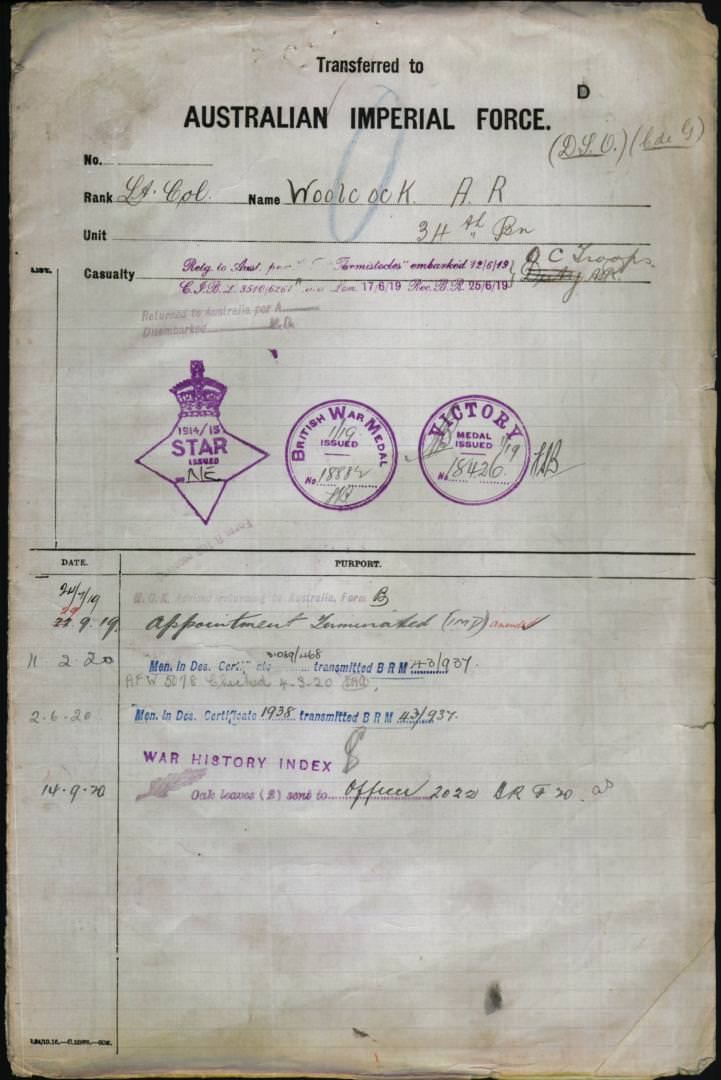 Transferred to
D
AUSTRALIAN IMPERIAL FORCE.
(D.S.O.) (C de G)
No.
Rank Lt. Col. Name Woolcock. A. R
Unit 34th Bn
Casualty Retg. to Aust. per "Themistocles" embarked 12/6/19 O C Troops.
C.I.B.L. 3510/6261 17/6/19 Rec. B.R. 25/6/19
Returned to Australia per
Disembarked
1914/15
STAR
ISSUED
NE
BRITISH WAR MEDAL
1/19
ISSUED
No. 18882
VICTORY
MEDAL
ISSUED
1/19
No. 18426
DATE. PURPORT.
24/7/19 returning to Australia, Form B
9. 19. Appointment Terminated (IMD) amended
11 2. 20 Men. in Des. Certificate transmitted B R M 43/937.
AFW 5078 Checked 4-3-20
2-6-20 Men. in Des. Certificate 1938 transmitted B R M 43/937.
WAR HISTORY INDEX
14-9-20 Oak leaves (2) sent to Officer 2022